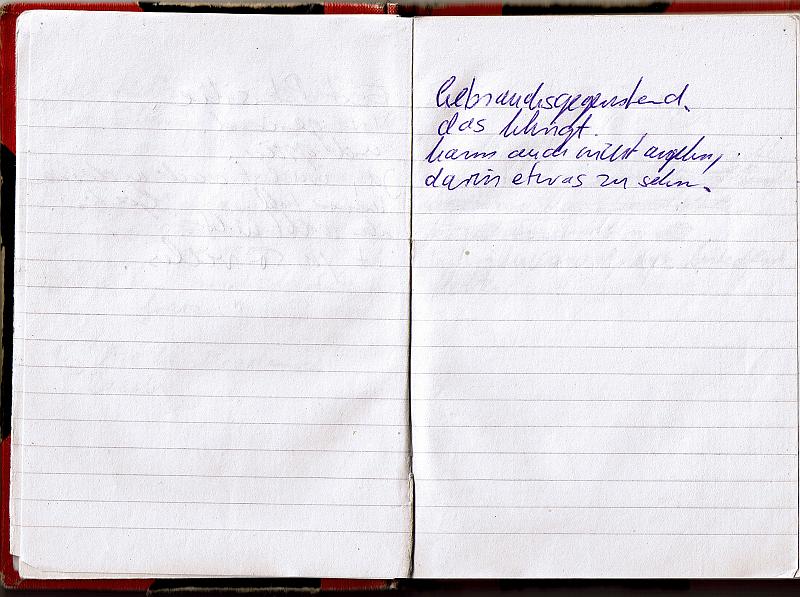 Gebrauchsgegenstand.
das klingt.
kann auch nicht angehn,
darin etwas zu sehn.